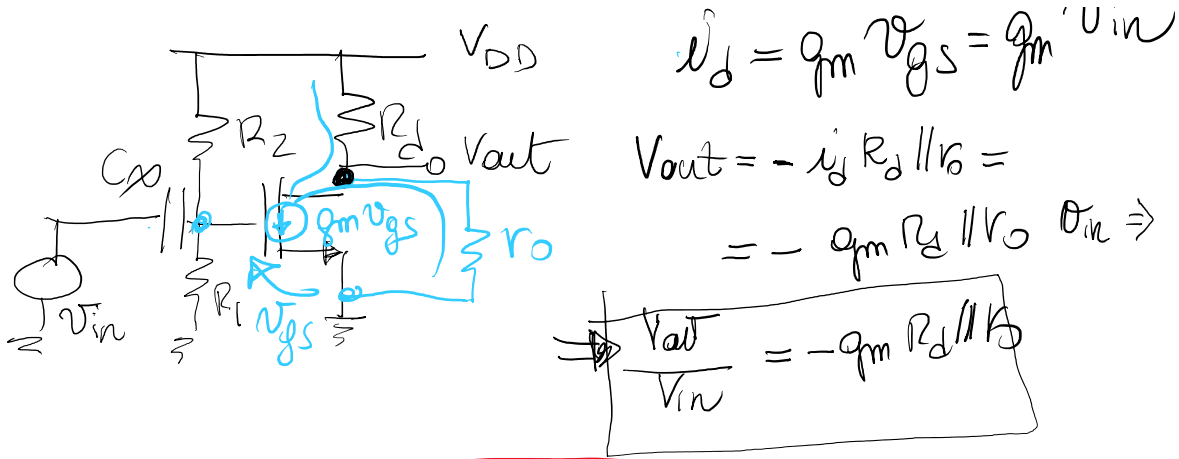 V_DD
R_2
R_d
Vout
C∞
g_m v_gs
r_o
R_1
v_gs
v_in
i_d = g_m v_gs = g_m · v_in
Vout = - i_d R_d // r_o =
= - g_m R_d // r_o v_in ⇒
⇒ Vout / Vin = - g_m R_d // r_o